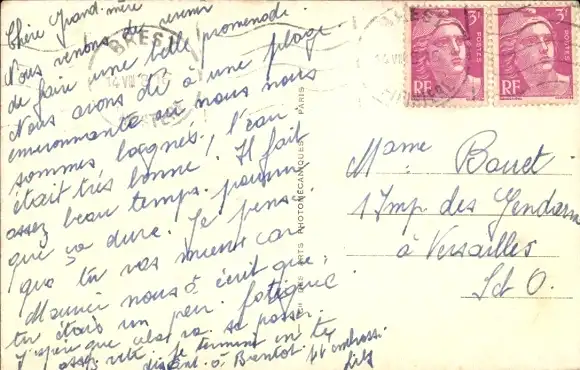 Chère Grand-mère
Nous venons de revenir
de faire une belle promenade.
Nous avons été à une plage
environnante où nous nous
sommes baignés, l'eau
était très bonne. Il fait
assez beau temps. pourvu
que ça dure. Je pense
que tu vas mieux car
Maurice nous à écrit que
tu étais un peu fatigué
J'espère que cela va se passer
assez vite. Je termine en te
disant à Bientôt.
BREST
14 VIII
BREST
3F
POSTES
RF
3F
POSTES
RF
DES ARTS PHOTOMÉCANIQUES PARIS
Mame Bauet
1 Imp. des Gendarm
à Versailles
S et O.